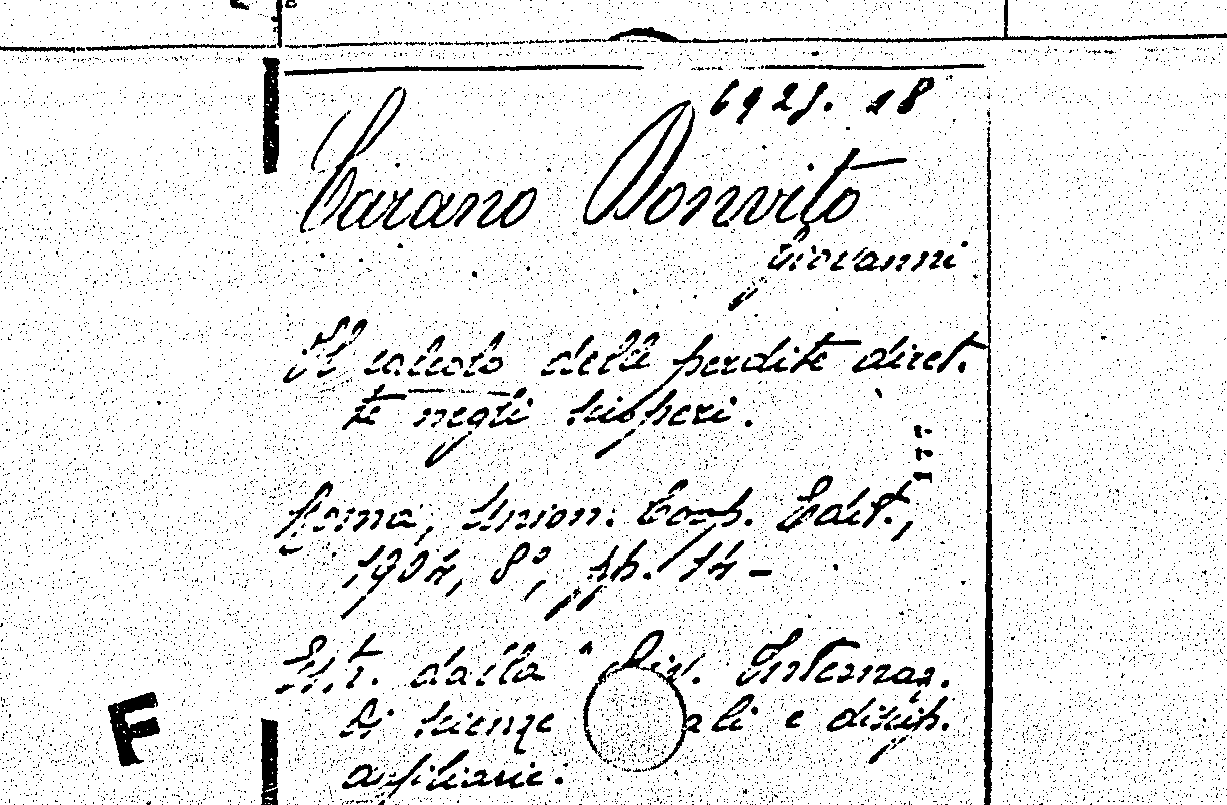 6925. 28
Carano Donvito
Giovanni
Il calcolo delle perdite diret.
te negli scioperi.
Roma, Union. Coop. Edit.,
1904, 8°, pp. 14 -
Estr. dalla "Riv. Internaz.
di scienze ali e discip.
ausiliarie:
F